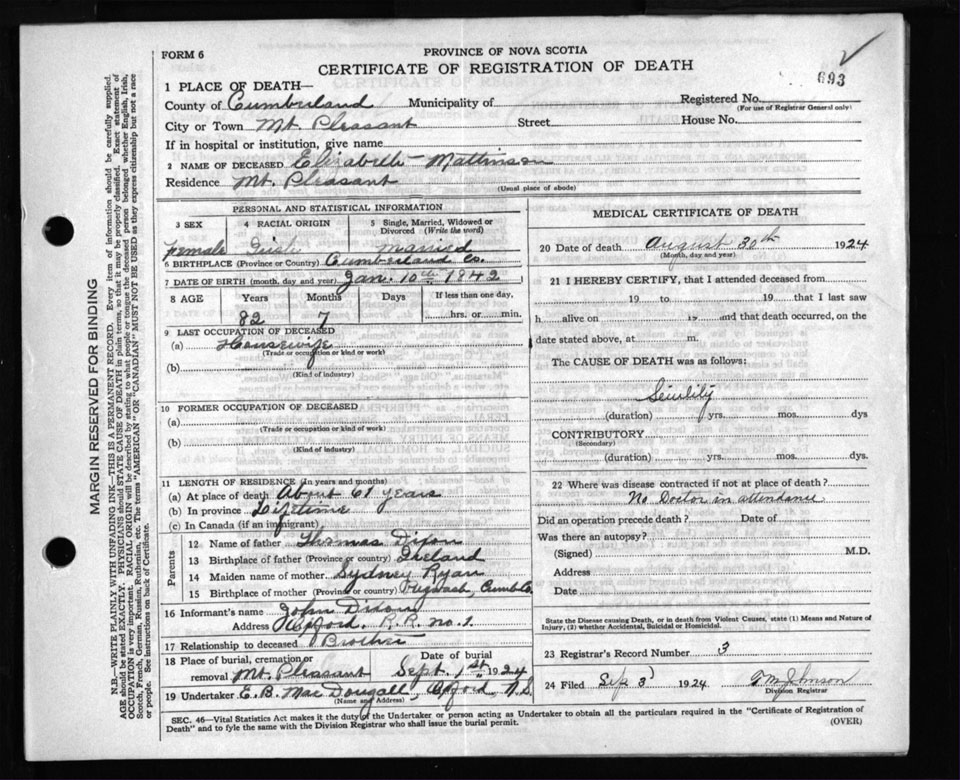 693
FORM 6
PROVINCE OF NOVA SCOTIA
CERTIFICATE OF REGISTRATION OF DEATH
1 PLACE OF DEATH—
County of Cumberland Municipality of Registered No.
(For use of Registrar General only)
City or Town Mt. Pleasant Street House No.
If in hospital or institution, give name
2 NAME OF DECEASED Elizabeth Mattinson
Residence Mt. Pleasant
(Usual place of abode)
PERSONAL AND STATISTICAL INFORMATION
3 SEX 4 RACIAL ORIGIN 5 Single, Married, Widowed or Divorced (Write the word)
Female Irish Married
6 BIRTHPLACE (Province or Country) Cumberland Co.
7 DATE OF BIRTH (month, day and year) Jan. 10th 1842
8 AGE Years Months Days If less than one day,
82 7 hrs. or min.
9 LAST OCCUPATION OF DECEASED
(a) Housewife
(Trade or occupation or kind or work)
(b)
(Kind of industry)
10 FORMER OCCUPATION OF DECEASED
(a)
(Trade or occupation or kind of work)
(b)
(Kind of industry)
11 LENGTH OF RESIDENCE (In years and months)
(a) At place of death About 61 years
(b) In province Lifetime
(c) In Canada (if an immigrant)
Parents
12 Name of father Thomas Dixon
13 Birthplace of father (Province or country) Ireland
14 Maiden name of mother Sydney Ryan
15 Birthplace of mother (Province or country) Pugwash, Cumb Co.
16 Informant's name John Dixon
Address Oxford. R.R. no. 1.
17 Relationship to deceased Brother
18 Place of burial, cremation or removal Mt. Pleasant Date of burial Sept. 1st 1924
19 Undertaker E. B. MacDougall, Oxford, N.S.
(Name and Address)
MEDICAL CERTIFICATE OF DEATH
20 Date of death August 30th 1924
(Month, day and year)
21 I HEREBY CERTIFY, that I attended deceased from
19 to 19 that I last saw
h alive on 19 and that death occurred, on
date stated above, at m.
The CAUSE OF DEATH was as follows:
Senility
(duration) yrs. mos. dys
CONTRIBUTORY
(Secondary)
(duration) yrs. mos. dys.
22 Where was disease contracted if not at place of death?
No Doctor in attendance
Did an operation precede death? Date of
Was there an autopsy?
(Signed) M.D.
Address
Date
State the Disease causing Death, or in death from Violent Causes, state (1) Means and Nature of Injury, (2) whether Accidental, Suicidal or Homicidal.
23 Registrar's Record Number 3
24 Filed Sep 3 1924 Johnson
Division Registrar
SEC. 46—Vital Statistics Act makes it the duty of the Undertaker or person acting as Undertaker to obtain all the particulars required in the "Certificate of Registration of
Death" and to fyle the same with the Division Registrar who shall issue the burial permit.
(OVER)
MARGIN RESERVED FOR BINDING
N.B.—WRITE PLAINLY WITH UNFADING INK—THIS IS A PERMANENT RECORD. Every item of information should be carefully supplied.
AGE should be stated EXACTLY. PHYSICIANS should STATE CAUSE OF DEATH in plain terms, so that it may be properly classified. Exact statement of
OCCUPATION is very important. RACIAL ORIGIN will be described by stating to what people or tongue the deceased person belonged, whether English, Irish,
Scotch, French, German, Russian, Ruthenian, etc. The terms "AMERICAN" OR "CANADIAN" MUST NOT BE USED as they express citizenship but not a race
or people. See instructions on back of Certificate.